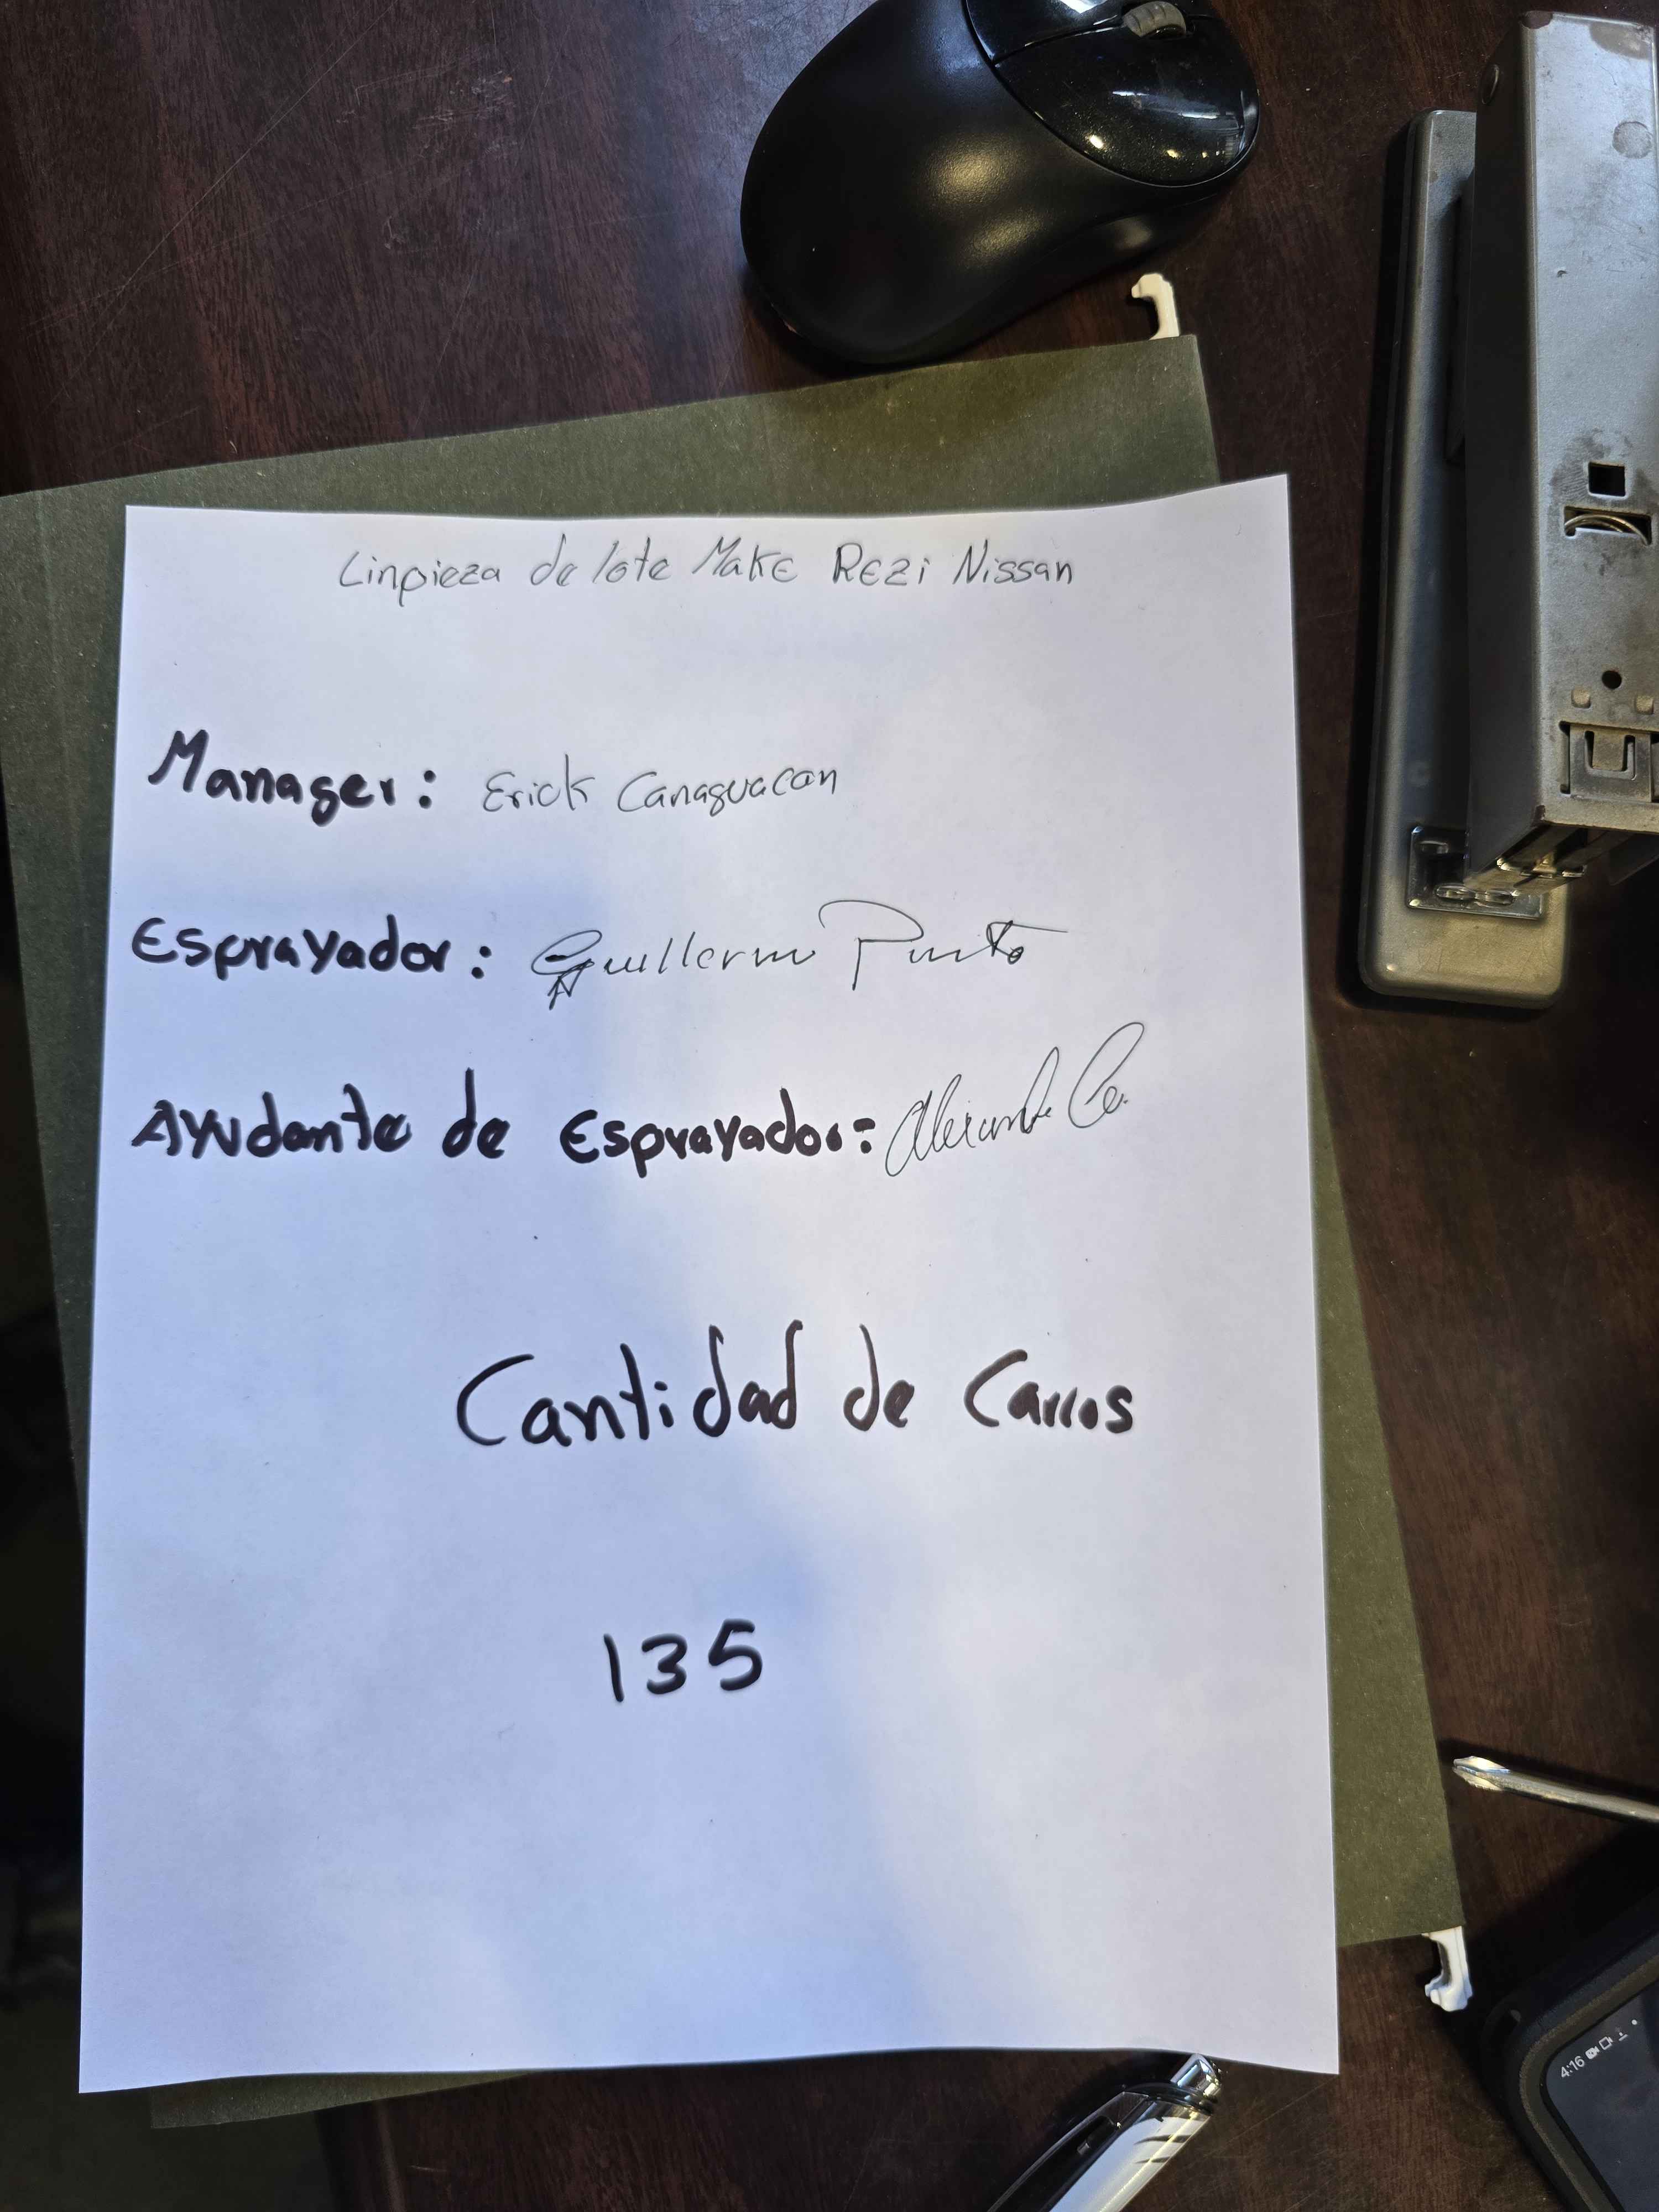 Linpieza de lote Make Rezi Nissan
Manager: Erick Canaguacan
Esprayador: Guillermo
Ayudante de Esprayador:
Cantidad de Carros
135
4:16